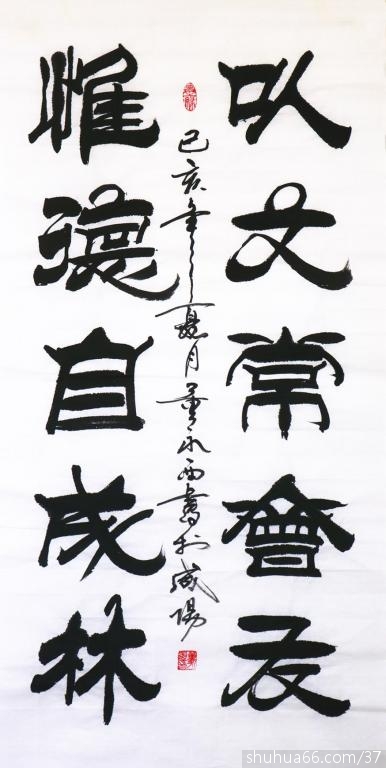 以文常會友
惟德自成林
己亥年之夏月董永西書於咸陽
shuhua66.com/37